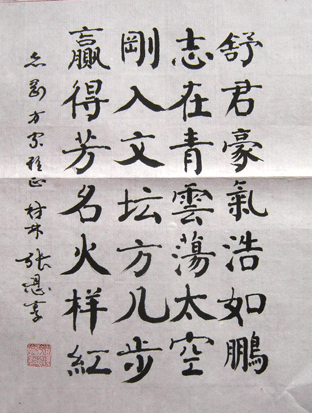 舒君豪氣浩如鵬
志在青雲蕩太空
剛入文坛方几步
贏得芳名火样紅
志剛方家雅正 張恩